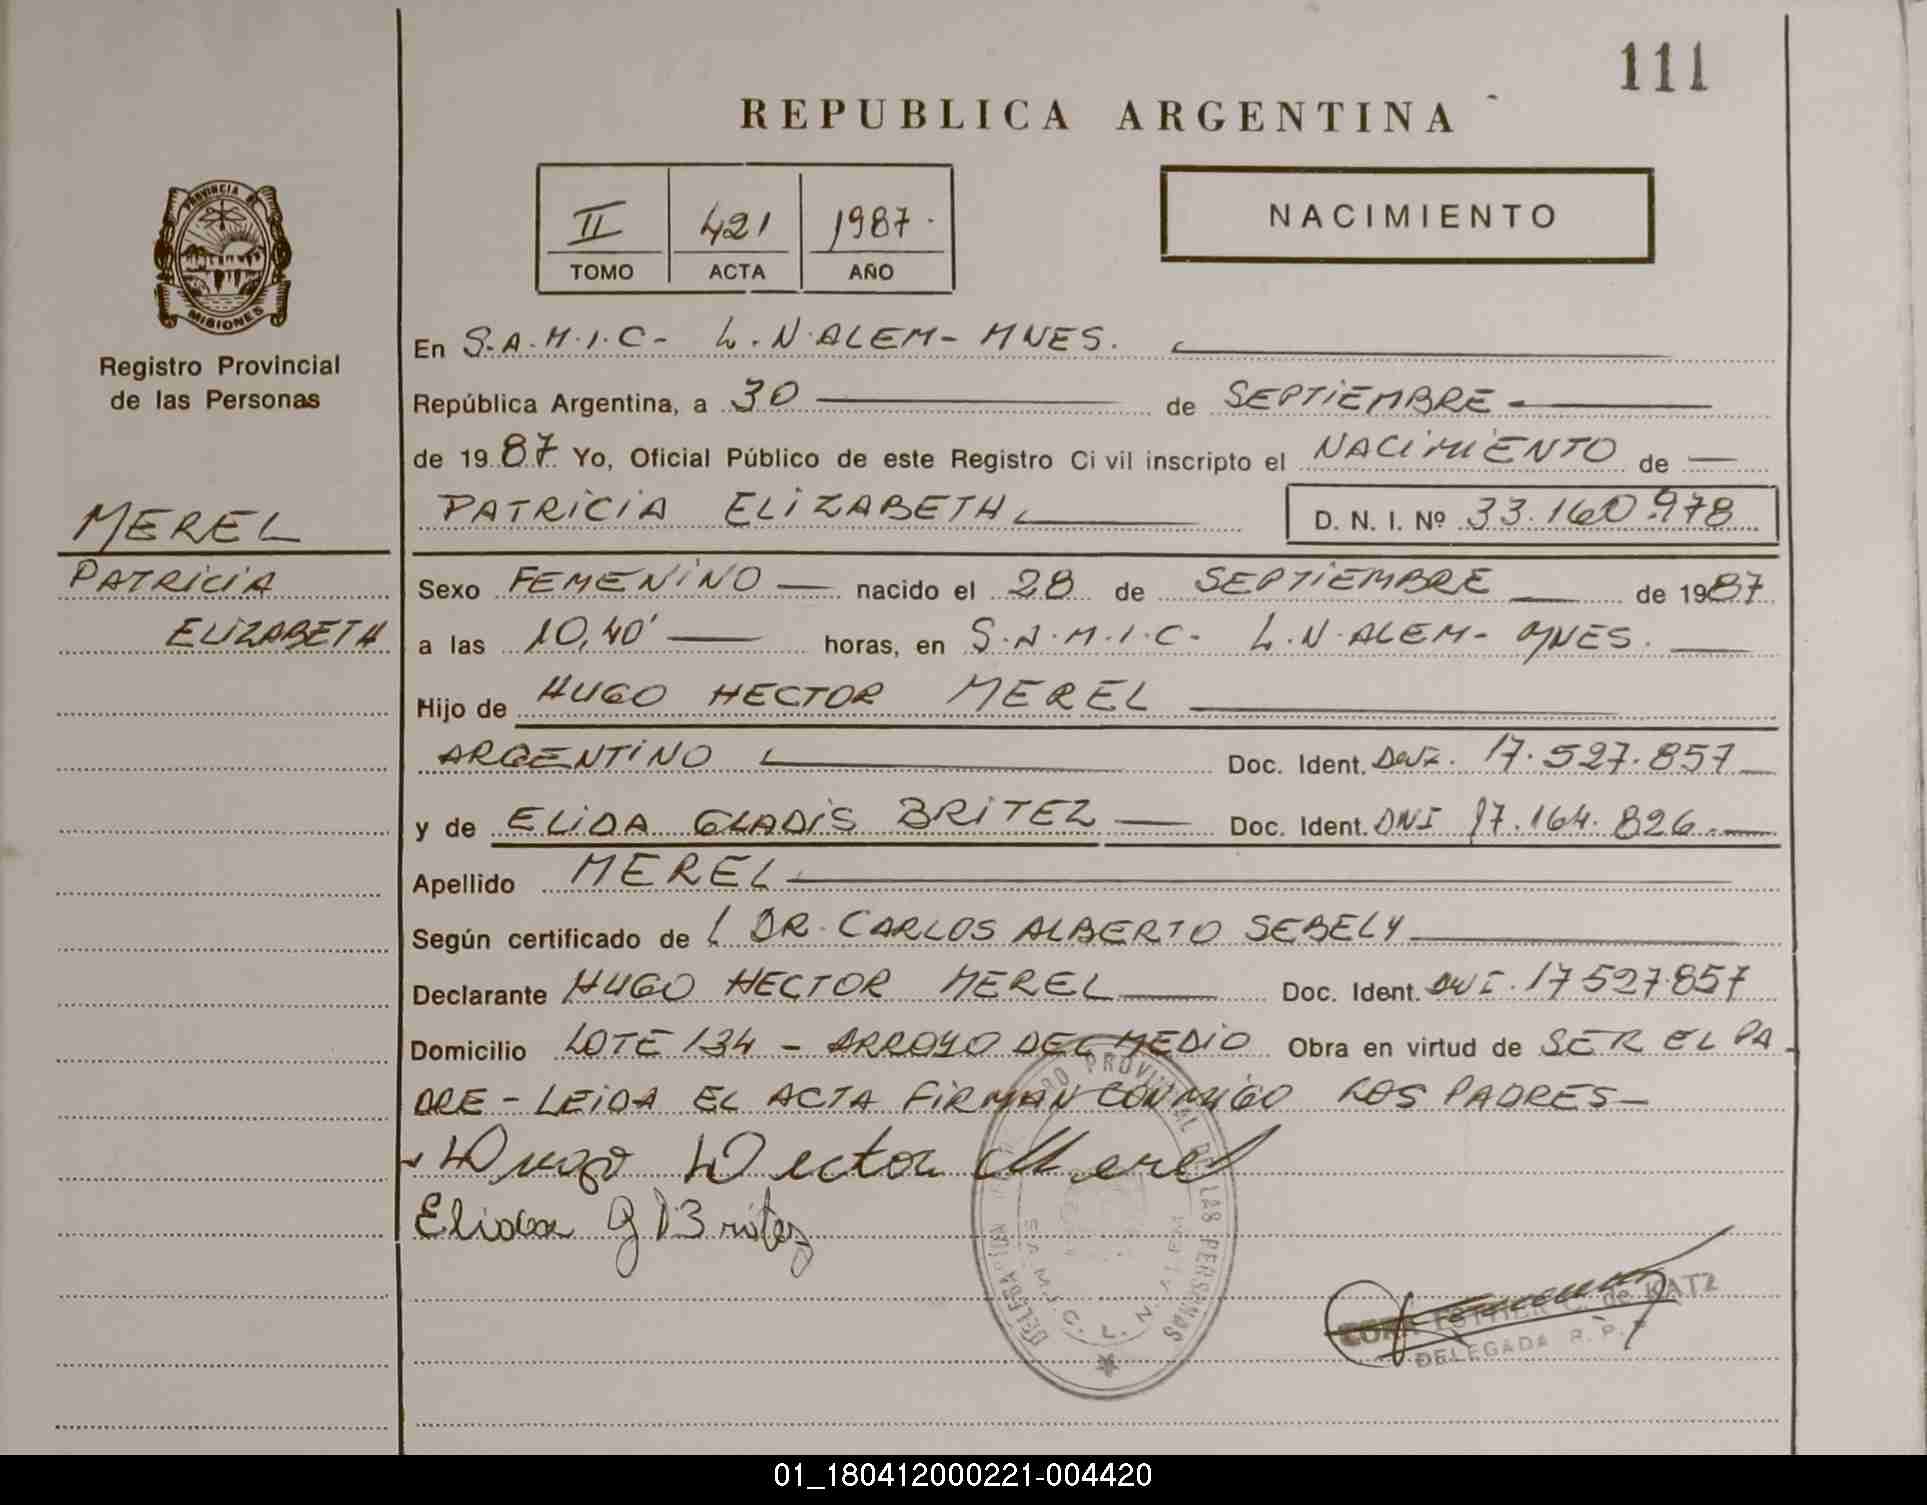 111
REPUBLICA ARGENTINA
II 421 1987.
TOMO ACTA AÑO
NACIMIENTO
PROVINCIA DE
MISIONES
Registro Provincial
de las Personas
MEREL
PATRICIA
ELIZABETH
En S.A.M.I.C- L.N.ALEM- MNES.
República Argentina, a 30 de SEPTIEMBRE
de 1987 Yo, Oficial Público de este Registro Ci vil inscripto el NACIMIENTO de
PATRICIA ELIZABETH D. N. I. Nº 33.160.978
Sexo FEMENINO nacido el 28 de SEPTIEMBRE de 1987
a las 10,40' horas, en S.A.M.I.C- L.N.ALEM- MNES.
Hijo de HUGO HECTOR MEREL
ARGENTINO Doc. Ident. DNI. 17.527.857
y de ELIDA GLADIS BRITEZ Doc. Ident. DNI 17.164.826
Apellido MEREL
Según certificado de DR. CARLOS ALBERTO SEBELY
Declarante HUGO HECTOR MEREL Doc. Ident. DNI. 17527.857
Domicilio LOTE 134 - ARROYO DEL MEDIO Obra en virtud de SER EL PA
DRE - LEIDA EL ACTA FIRMAN CONMIGO LOS PADRES-
Hugo Hector Merel
Elida G Britez
PROVINCIAL DE LAS PERSONAS
S.A.M.I.C. L.N.
CORA ESTHER C. de KATZ
DELEGADA R. P. P
01_180412000221-004420